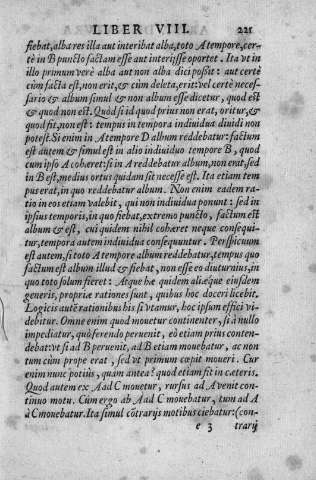 LIBER VIII. 221
fiebat, alba res illa aut interibat alba, toto A tempore, cer-
tè in B puncto factam esse aut interijsse oportet. Ita vt in
illo primum verè alba aut non alba dici possit: aut certè
cùm facta est, non erit, & cùm deleta, erit: vel certè neces-
sario & album simul & non album esse dicetur, quod est
& quod non est. Quòd si id quod prius non erat, oritur, &
quod fit, non est: tempus in tempora indiuidua diuidi non
potest. Si enim in A tempore D album reddebatur: factum
est autem & simul est in alio indiuiduo tempore B, quod
cum ipso A cohæret: si in A reddebatur album, non erat, sed
in B est, medius ortus quidam sit necesse est. Ita etiam tem
pus erat, in quo reddebatur album. Non enim eadem ra-
tio in eos etiam valebit, qui non indiuidua ponunt: sed in
ipsius temporis, in quo fiebat, extremo puncto, factum est
album & est, cui quidem nihil cohæret neque consequi-
tur, tempora autem indiuidua consequuntur. Perspicuum
est autem, si toto A tempore album reddebatur, tempus quo
factum est album illud & fiebat, non esse eo diuturnius, in
quo toto solum fieret: Atque hæ quidem aliæque eiusdem
generis, propriæ rationes sunt, quibus hoc doceri licebit.
Logicis autē rationibus his si vtamur, hoc ipsum effici vi-
debitur. Omne enim quod mouetur continenter, si à nullo
impediatur, quò ferendo peruenit, eò etiam prius conten-
debat: vt si ad B peruenit, ad B etiam mouebatur, ac non
tum cùm propè erat, sed vt primum cœpit moueri. Cur
enim nunc potiùs, quam antea? quod etiam fit in cæteris.
Quod autem ex A ad C mouetur, rursus ad A venit con-
tinuo motu. Cùm ergo ab A ad C mouebatur, tum ad A
à C mouebatur. Ita simul cōtrarijs motibus ciebatur: (con-
e 3 trarij